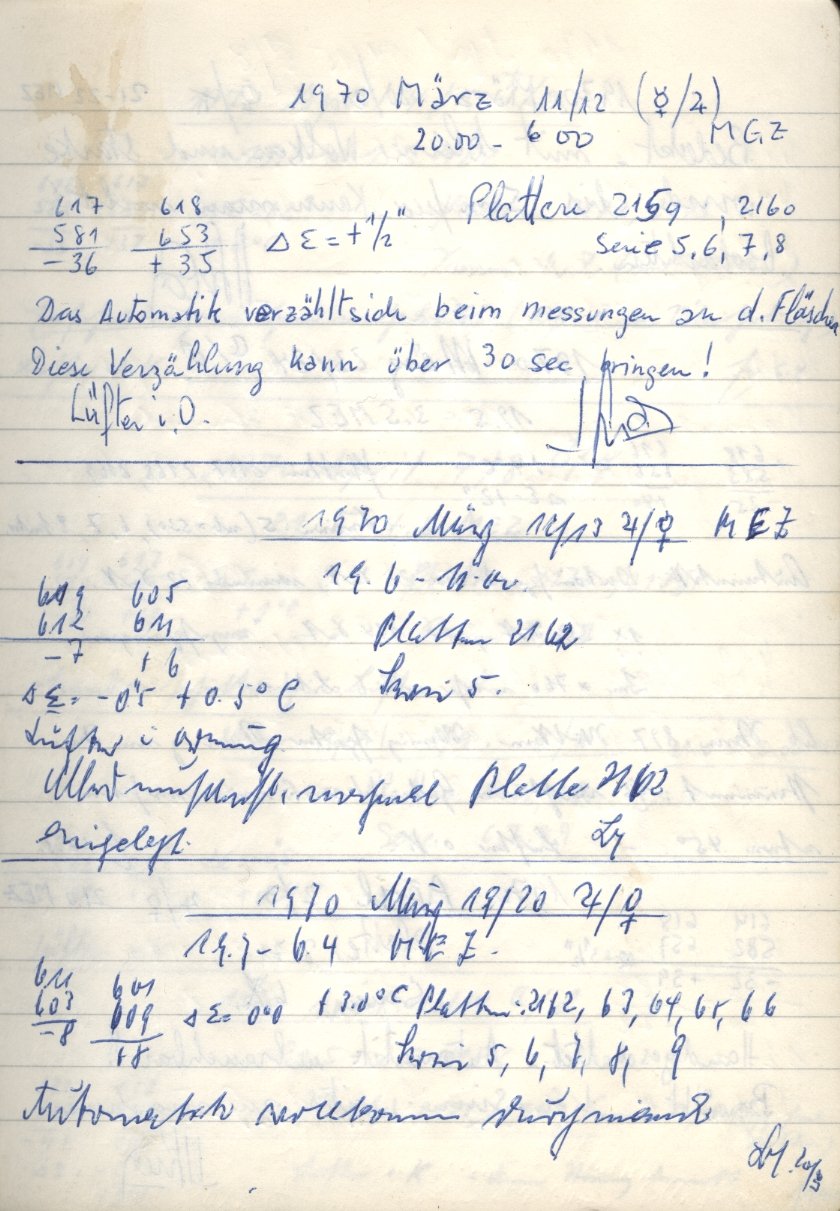 1970 März 11/12 (☿/♃)
20.00 - 6 00 MGZ
617 618 Platten 2159, 2160
581 653 Δ Σ = + 1/2" Serie 5, 6, 7, 8
- 36 + 35
Das Automatik verzählt sich beim messungen an d. Fläschen
Diese Verzählung kann über 30 sec bringen!
Lüfter i. O.
1970 März 12/13 ♃/♀ MEZ
19. 6 -
609 605
612 611 Platten 2162
- 7 + 6
Δ Σ = - 0"5 + 0.5° C Serie 5.
Lüfter i Ordnung
Platte 2162
eingelegt.
1970 März 19/20 ♃/♀
19.7 - 6.4 MEZ.
611 601
603 609 Δ Σ = 0"0 + 3.0° C Platten: 2162, 63, 64, 65, 66
- 8 + 8 Serie 5, 6, 7, 8, 9
Automatik vollkommen